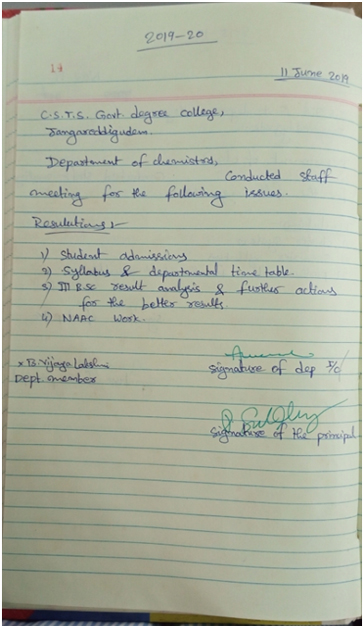 2019-20
14
11 June 2019
C.S.T.S. Govt degree college,
Jangareddigudem.
Department of chemistry,
Conducted staff
meeting for the following issues.
Resolutions:-
1) Student admissions
2) Syllabus & departmental time table.
3) III BSc result analysis & further actions
for the better results.
4) NAAC Work.
x B. Vijaya Lakshmi
Dept member
Signature of dep I/c
Signature of the principal